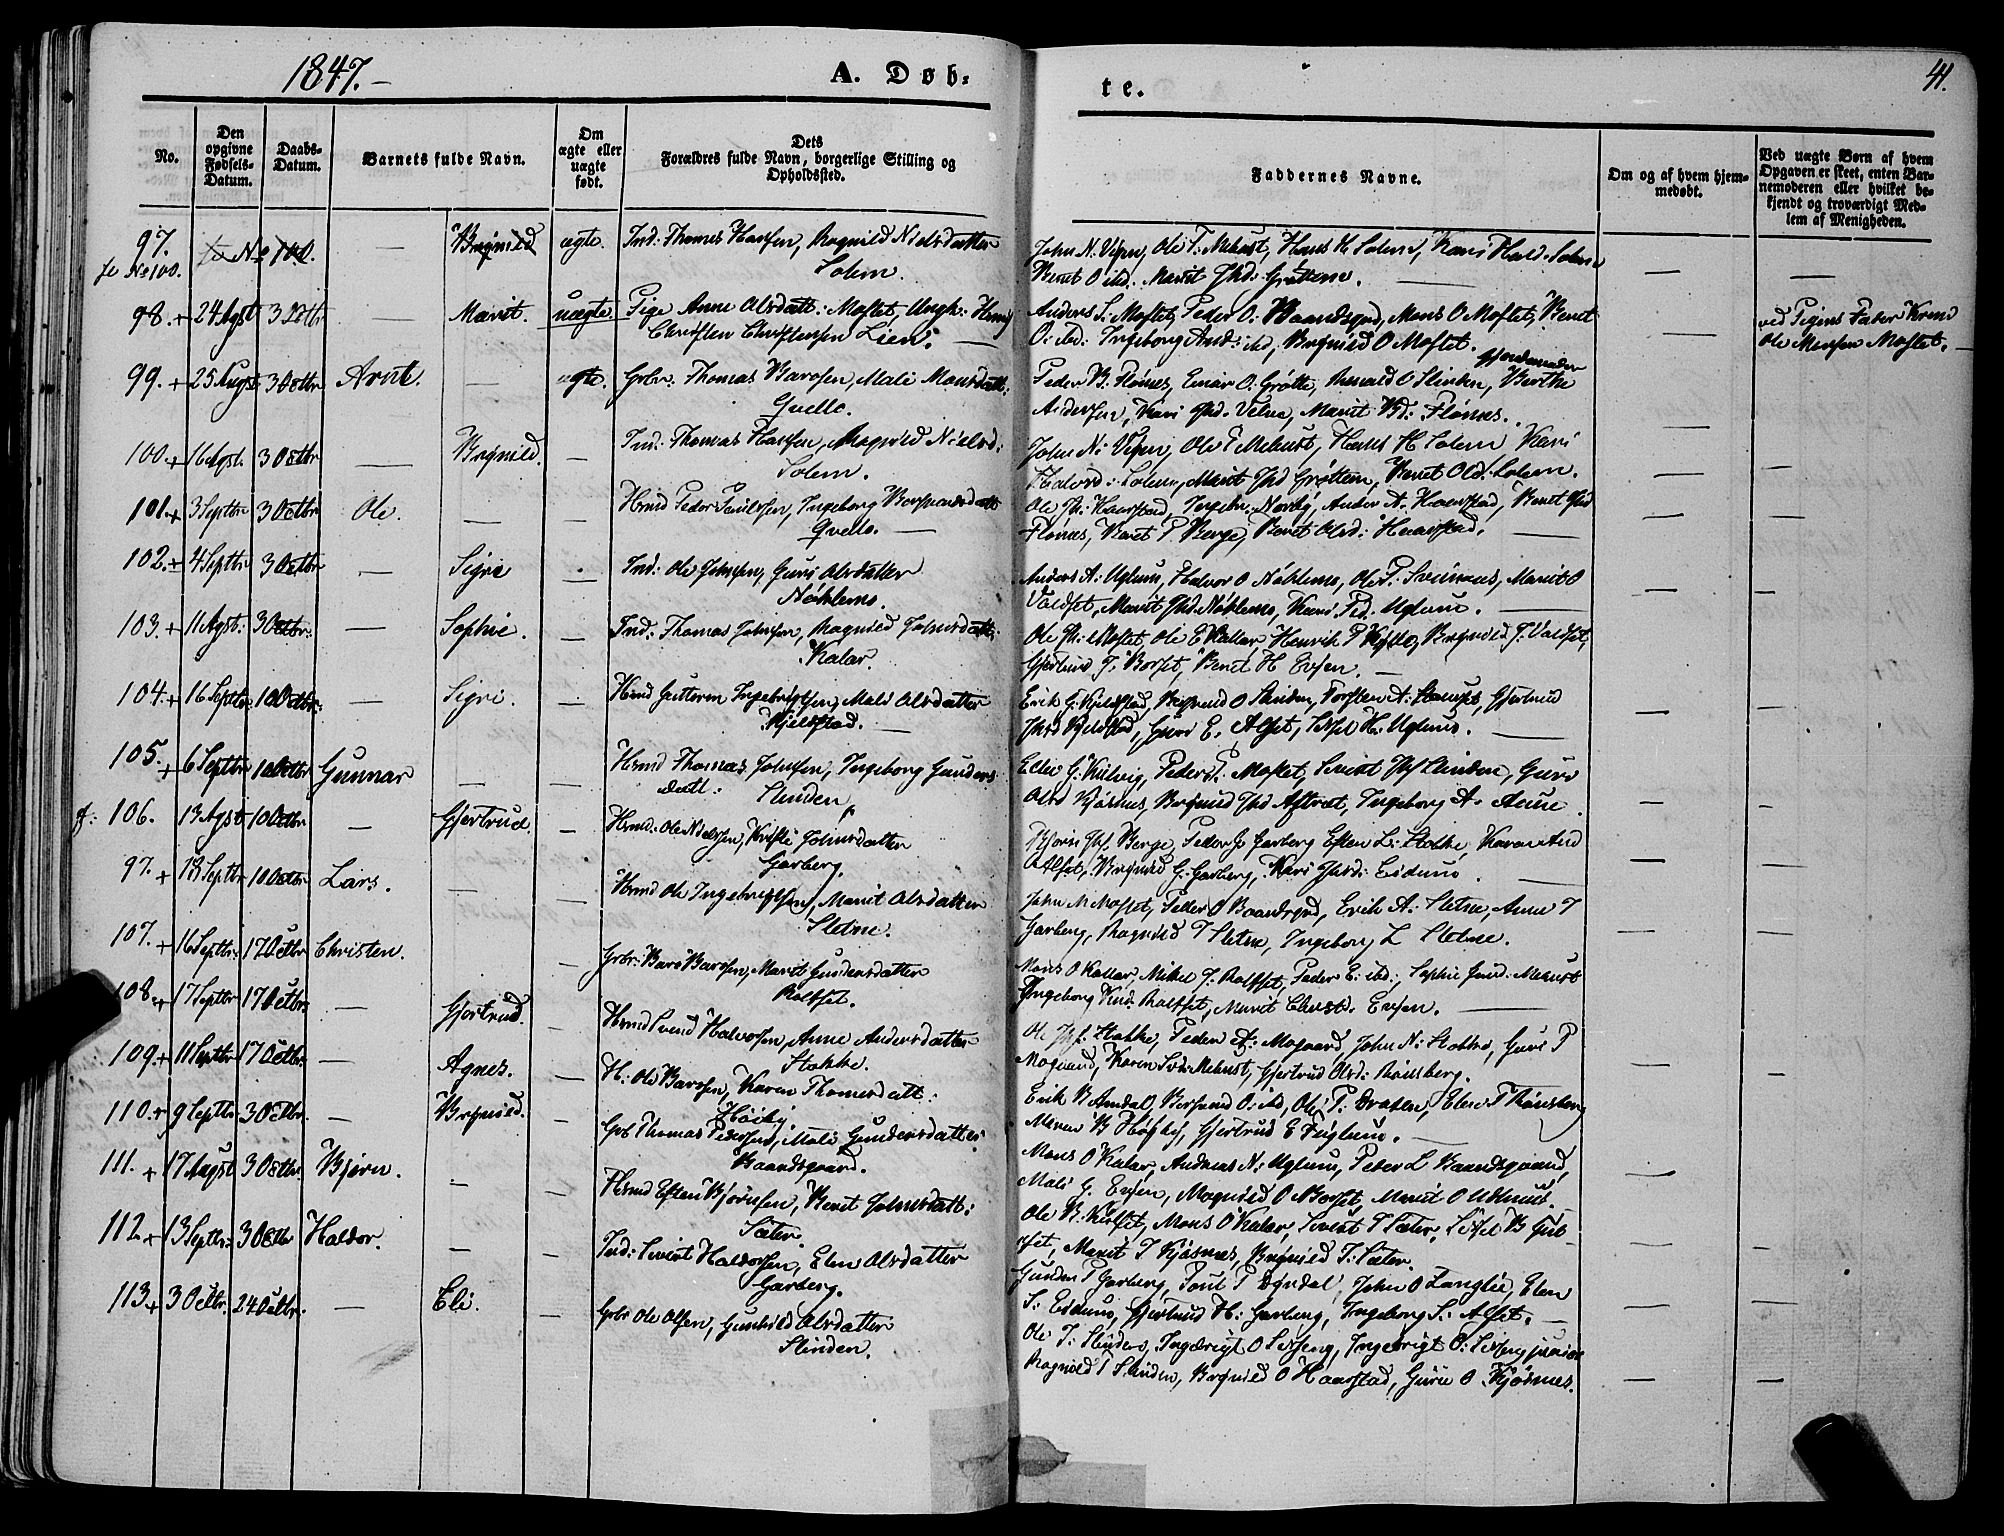 1847.
A. Døb:
te.
41.
No.
Den opgivne Fødsels-Datum.
Daabs-Datum.
Barnets fulde Navn.
Om ægte eller uægte født.
Dets Forældres fulde Navn, borgerlige Stilling og Opholdssted.
Faddernes Navne.
Om og af hvem hjem-medøbt.
Ved uægte Børn af hvem Opgaven er skeet, enten Bar-nemoderen eller hvilket be-kjendt og troværdigt Med-lem af Menigheden.
97. No 100. — Brynild ægte. Ind: Thomas Hansen, Ragnild Nielsdatter
No 100. Solem.
John N: Viken, Ole T: Mehust, Hans H Solem, Kari Hald: Solem
Beret O ibd. Marit Jhd: Grøttem. —
98. + 24 Agst 3 Octbr — Marit. uægte. Pige Anne Olsdatt: Mostet, Ungk:
Christen Christensen Lien. —
Anders S: Mostet, Peder O: Baardsgrd, Mons O Mostet, Beret
O: ibd: Ingeborg And: ibd, Brynild O Mostet.
ved Pigens Fader
Ole Monsen Mostet. —
99. + 25 Augst 3 Octbr Arnt. — ægte. Grbr: Thomas Barosen, Mali Monsdatt:
Qvello.
Peder B. Flønes, Einar O: Grøtte, Arnald O Slinden, Berthe
Andersen, Kari Jhd. Velve, Marit Bd: Flønes.
100. + 16 Agst. 3 Octbr — Brynild. — Ind: Thomas Hansen, Ragnild Nielsd:
Solem.
John N: Viken, Ole T Mehust, Hans H Solem Kari
Halvd: Solem, Marit Jhd Grøttem, Beret Old: Solem.
101. + 3 Septbr 3 Octbr Ole. — — Hmd Peder Paulsen, Ingeborg
Qvello. —
Ole Th: Haarstad, Norbÿ, Ander A. Haarstad, Beret Jhd
Flønes, Beret P Berge, Beret Olsd: Haarstad. —
102. + 4 Septbr 3 Octbr — Sigri Ind: Ole Johnsen, Guri Olsdatter
Nøklemo.
Anders A: Uglum, Halvor O Nøklemo, Ole P: Svinaas, Marit O
Valdset, Marit Jhd Nøklemo, Kari Pd. Uglum. —
103. + 11 Agst: 3 Octbr: — Sophie. — Ind: Thomas Johnsen, Ragnild Johnsdatt:
Kalar.
Ole Th: Mostet, Ole E Kallar, Henrik P Kÿllo, Brynild J. Valdset,
Gjertrud J: Borset, Beret H Evjen. —
104. + 16 Septbr 10 Octbr: — Sigri. — Hmd Guttorm Ingebrigtsen, Mali Olsdatter
Kjelstad. —
Erik G. Kjelstad, O Slinden, Torsten A: Stamset, Gjertrud
Jhd Kjelstad, Guri E. Alset, Sissel H: Uglum. —
105. + 6 Septbr 10 Octbr Gunnar — — Hmd Thomas Johnsen, Ingeborg Gunders
datt: Slinden.
Ellev G. Kulvig, Peder P: Mostet, Sivert Jhs Slinden, Guri
Olsd Kjøsnes, Brynild Jhd Aftret, Ingeborg A. Aune.
106. 13 Agst 10 Octbr — Gjertrud. — Hmd: Ole Nielsen, Kristi Johnsdatter
Garberg.
Bjørn Jhs. Berge, Peder J. Garberg Esten L: Stokke, Karen And
Alset, Brynild G. Garberg, Kari Jhd: Eidum. —
97. + 13 Septbr 10 Octbr Lars. — — Hmd Ole Ingebrigtsen, Marit Olsdatter
Sletne.
John M Mostet, Peder O Baardsgrd, Erik A: Sletne, Anne T
Garberg, Ragnild T Sletne, Ingeborg L Sletne.
107. + 16 Septbr: 17 Octbr Christen. — Grbr: Baro Barosen, Marit Gundersdatter
Rolset.
Mons O Kallar, Mikel J. Rolset, Peder E: ibd:, Sophie Mehust
Ingeborg Rolset, Marit Evjen. —
108. + 17 Septbr 17 Octbr: — Gjertrud. — Hmd Svend Halvorsen, Anne Andersdatter
Stokke.
Ole Jhs: Stokke, Peder A: Mogaard, John N: Stokke, Guri P
Mogaard, Karen Mehust, Gjertrud Olsd: Rønsberg.
109. + 11 Septbr 17 Octbr. — Agnes. — H: Ole Barosen, Karen Thomesdatt:
Høibÿ.
Erik B Amdal, O: ibd, Ole P: Draxten, Elen T Rønsberg
Maren B Høibÿ, Gjertrud E Fuglem. —
110. + 9 Septbr 3 Octbr. — Brynild. Grb Thomas Pedersen, Mali Gundersdatter
Baardsgaard.
Mons O Kalar, Andreas N: Uglum, Peder L Baardsgaard,
Mali G. Evjen, Magnild O Borset, Marit O Udmus.
111. + 17 Augst 3 Octbr Bjørn. — — Hmd Esten Bjørnsen, Beret Johnsdatt:
Sæter.
Ole B. Kulset, Mons O Kalar, Sivert T Sæter, Sissel B Gul-
set, Marit T Kjøsnes, Brynild T: Sæter.
112. + 13 Septbr: 3 Octbr Haldor. — — Ind: Sivert Haldorsen, Elen Olsdatter
Garberg.
Gunder P Garberg, Poul P Dÿrdal, John O Langlie, Elen
S: Eidum, Gjertrud H: Garberg, Ingeborg S: Alset. —
113. + 3 Octbr: 24 Octbr: — Eli. — Grbr Ole Olsen, Gunhild Olsdatter
Slinden.
Ole T: Slinden, Ingebrigt O Selseng, Ingebrigt O: Selseng junior
Ragnild T Slinden, Brynild O Haarstad, Guru O Kjøsnes.